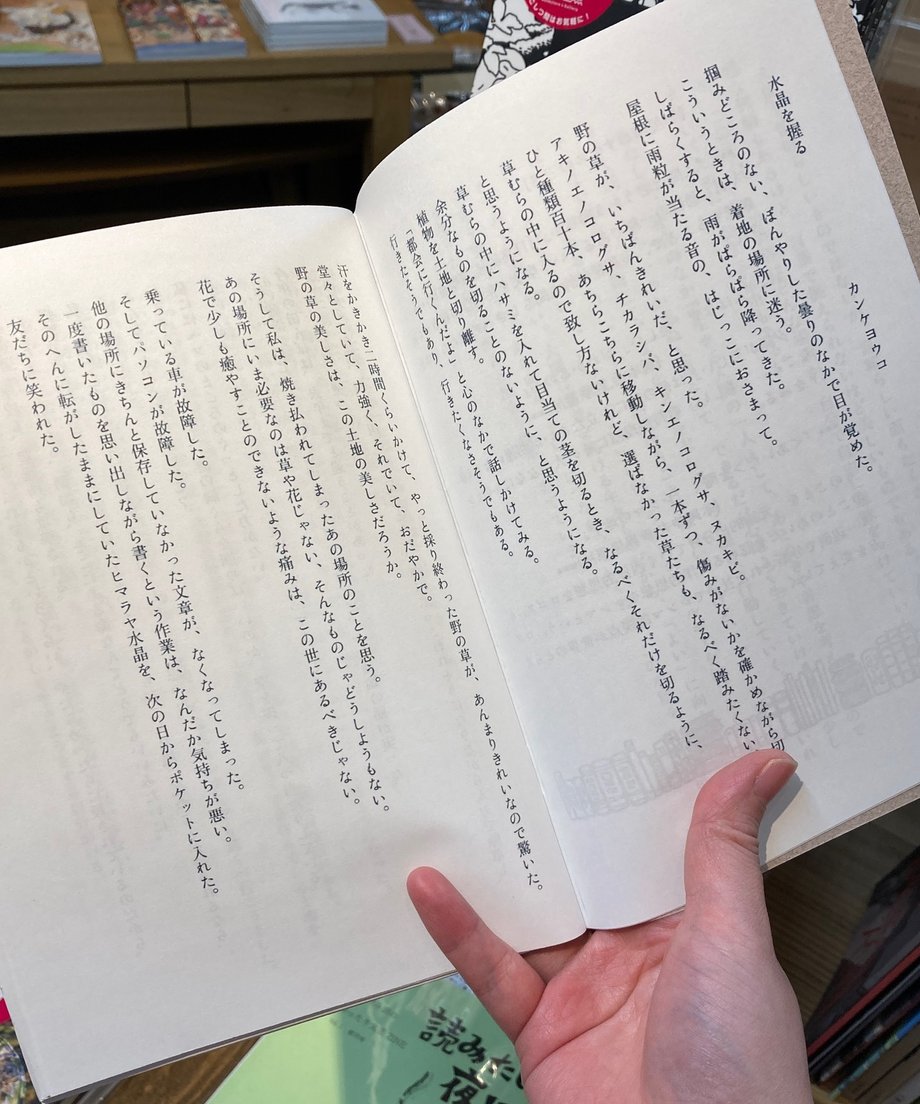 水晶を握る
カンケヨウコ
掴みどころのない、ぼんやりした曇りのなかで目が覚めた。
こういうときは、着地の場所に迷う。
しばらくすると、雨がぱらぱら降ってきた。
屋根に雨粒が当たる音の、はじっこにおさまって。
野の草が、いちばんきれいだ、と思った。
アキノエノコログサ、チカラシバ、キンエノコログサ、ヌカキビ。
ひと種類百十本、あちらこちらに移動しながら、一本ずつ、傷みがないかを確かめながら切
草むらの中に入るので致し方ないけれど、選ばなかった草たちも、なるべく踏みたくない
と思うようになる。
草むらの中にハサミを入れて目当ての茎を切るとき、なるべくそれだけを切るように、
余分なものを切ることのないように、と思うようになる。
植物を土地と切り離す。
「都会に行くんだよ」と心のなかで話しかけてみる。
行きたそうでもあり、行きたくなさそうでもある。
汗をかきかき二時間くらいかけて、やっと採り終わった野の草が、あんまりきれいなので驚いた。
堂々としていて、力強く、それでいて、おだやかで。
野の草の美しさは、この土地の美しさだろうか。
そうして私は、焼き払われてしまったあの場所のことを思う。
あの場所にいま必要なのは草や花じゃない、そんなものじゃどうしようもない。
花で少しも癒やすことのできないような痛みは、この世にあるべきじゃない。
乗っている車が故障した。
そしてパソコンが故障した。
他の場所にきちんと保存していなかった文章が、なくなってしまった。
一度書いたものを思い出しながら書くという作業は、なんだか気持ちが悪い。
そのへんに転がしたままにしていたヒマラヤ水晶を、次の日からポケットに入れた。
友だちに笑われた。
でしつ間はお気軽に!
読みた
夜